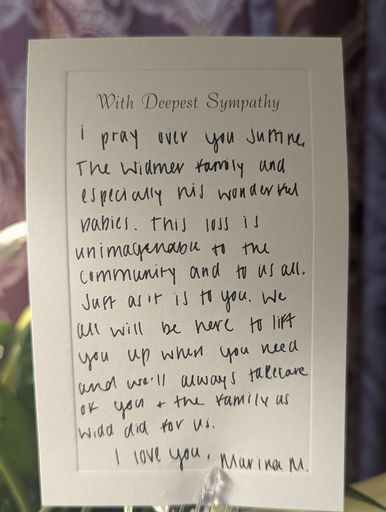 With Deepest Sympathy
I pray over you Justine,
The Widmer family and
especially his wonderful
babies. This loss is
unimagenable to the
community and to us all.
Just as it is to you. We
all will be here to lift
you up when you need
and we'll always takecare
of you + the family as
Widd did for us.
I love you, Marina M.